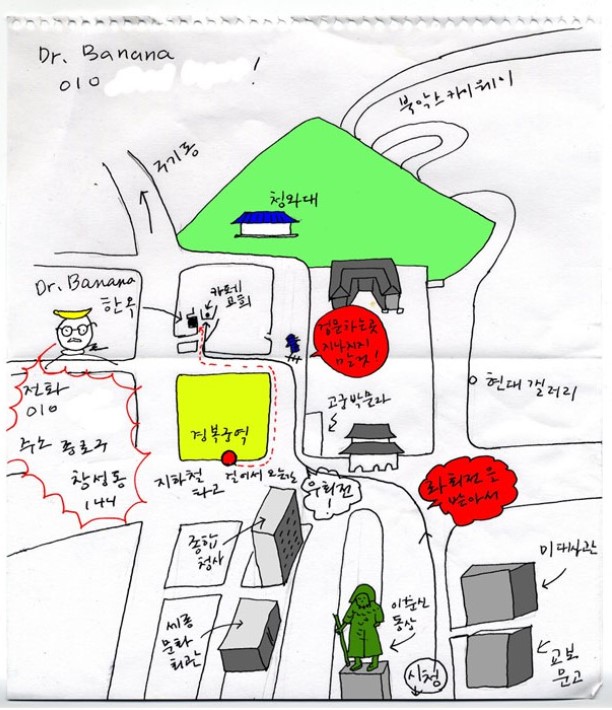 Dr. Banana
010 !
북악스카이웨이
구기동
청와대
Dr. Banana
한옥
카페
고희
검문하는곳
지나치지
말것!
고궁박물관
현대갤러리
전화
010
주소 종로구
창성동
144
경복궁역
지하철
타고
걸어서 오는길
우회전
!
좌회전은
받아서
종합
청사
세종
문화
회관
이순신
동상
시청
미대사관
교보
문고